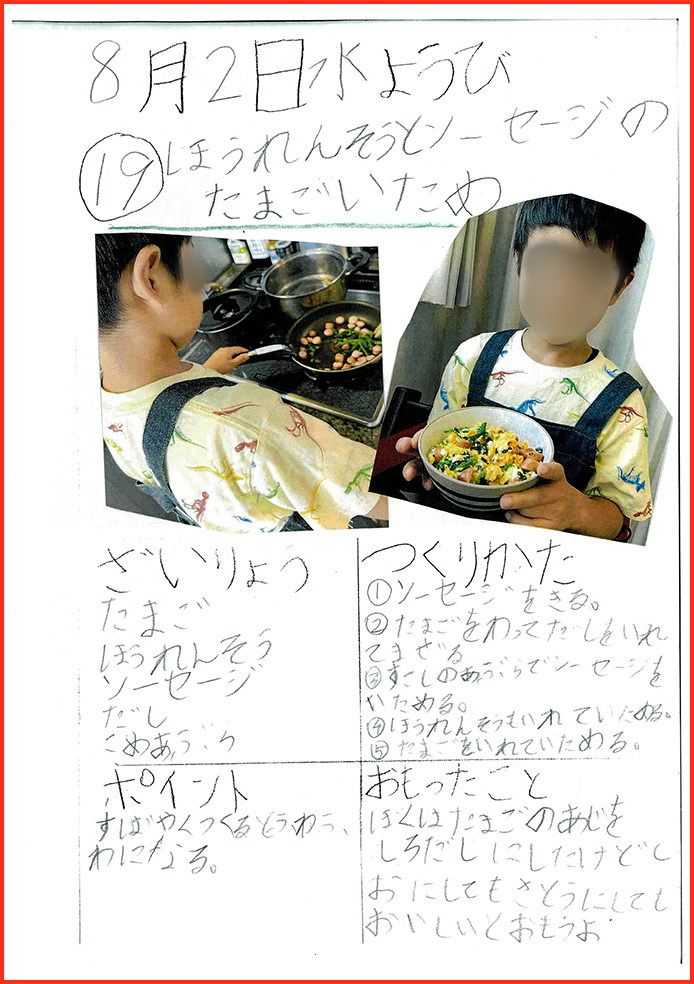 8月2日水ようび
⑲ほうれんそうとソーセージの
たまごいため
ざいりょう
たまご
ほうれんそう
ソーセージ
だし
こめあぶら
つくりかた
①ソーセージをきる。
②たまごをわってだしをいれ
てまぜる
③すこしのあぶらでソーセージを
いためる。
④ほうれんそうもいれていためる。
⑤たまごをいれていためる。
ポイント
すばやくつくるとふわふ
わになる。
おもったこと
ぼくはたまごのあじを
しろだしにしたけどし
おにしてもさとうにしても
おいしいとおもうよ